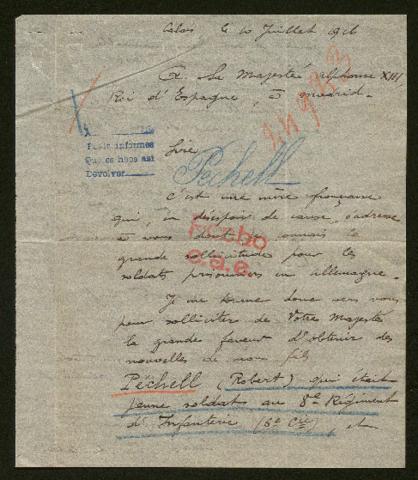 Calais le 10 Juillet 1916
A. Sa Majesté Alphonse XIII,
Roi d'Espagne, à Madrid.
Pedir informes
Que se haga así
Devolver
Sire
Pechell
C'est une mère française
qui, en désespoir de cause, s'adresse
à vous dont je connais la
grande sollicitude pour les
soldats prisonniers en Allemagne.
Hecho
Je me tourne donc vers vous
pour solliciter de Votre Majesté
la grande faveur d'obtenir des
nouvelles de mon fils
Pechell (Robert) qui était
jeune soldat au 8e Régiment
d'Infanterie (8e Cie), et